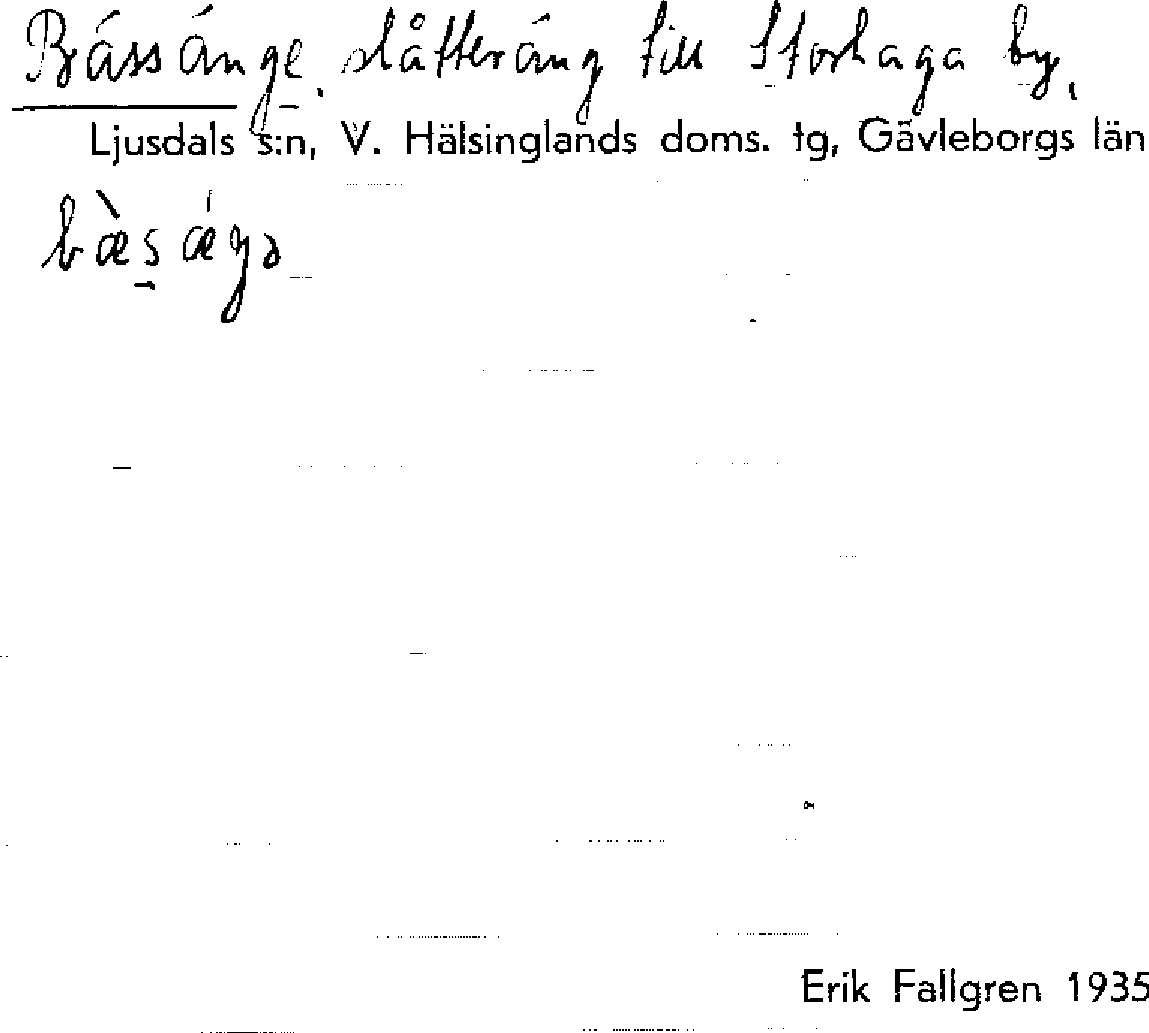 Bässänge, slåtteräng till Storhaga by,
Ljusdals s:n, V. Hälsinglands doms. tg, Gävleborgs län
bæ̀sǽŋə
Erik Fallgren 1935